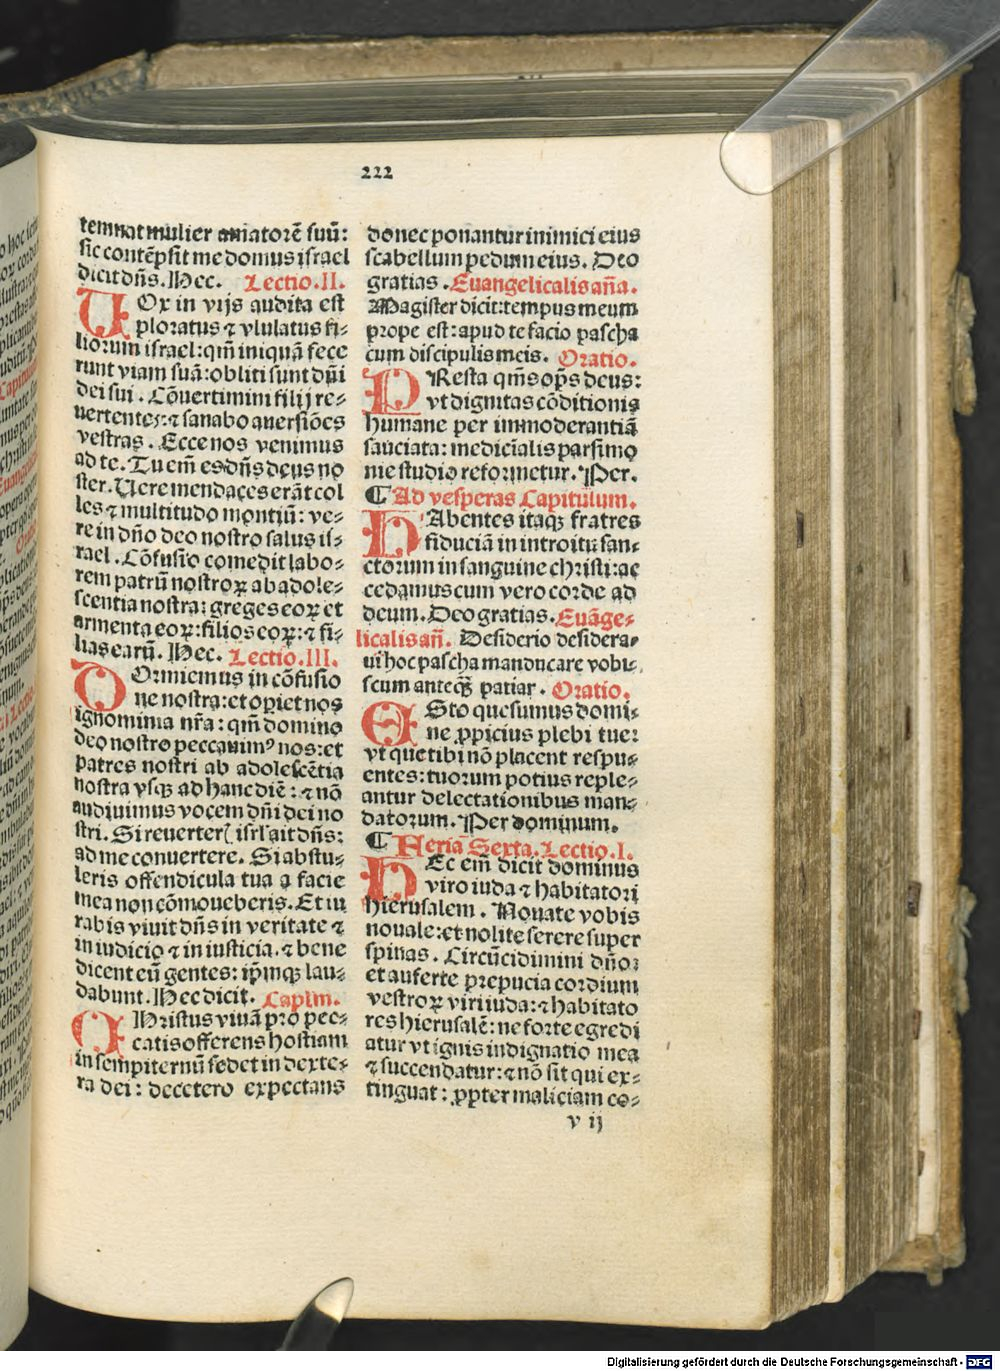 222
temnat mulier amatorē suū:
sic contēpsit me domus israel
dicit dn̄s. Hec. Lectio.II.
UOx in vijs audita est
ploratus ⁊ vlulatus fi⸗
liorum israel: qm̄ iniquā fece
runt viam suā: obliti sunt dn̄i
dei sui. Cōuertimini filij re⸗
uertentes: ⁊ sanabo auersiōes
vestras. Ecce nos venimus
ad te. Tu em̄ es dn̄s deus no
ster. Uere mendaces erāt col
les ⁊ multitudo montiū: ve⸗
re in dn̄o deo nostro salus is⸗
rael. Cōfusio comedit labo⸗
rem patrū nostroꝝ ab adole⸗
scentia nostra: greges eoꝝ et
armenta eoꝝ: filios eoꝝ: ⁊ fi⸗
lias earū. Hec. Lectio.III.
DOrmiemus in cōfusio
ne nostra: et opiet nos
ignominia nr̄a: qm̄ domino
deo nostro peccauimꝰ nos: et
patres nostri ab adolescētia
nostra vsqꝫ ad hanc diē: ⁊ nō
audiuimus vocem dn̄i dei no
stri. Si reuerter̄ isrl̄ ait dn̄s:
ad me conuertere. Si abstu⸗
leris offendicula tua a facie
mea non cōmoueberis. Et iu
rabis viuit dn̄s in veritate ⁊
in iudicio ⁊ in iusticia. ⁊ bene
dicent eū gentes: ip̄mqꝫ lau⸗
dabunt. Hec dicit. Caplm̄.
CHristus vnā pro pec⸗
catis offerens hostiam
in sempiternū sedet in dexte⸗
ra dei: de cetero expectans
donec ponantur inimici eius
scabellum pedum eius. Deo
gratias. Euangelicalis an̄a.
Magister dicit: tempus meum
prope est: apud te facio pascha
cum discipulis meis. Oratio.
PResta qm̄s op̄s deus:
vt dignitas cōditionis
humane per immoderantiā
sauciata: medicīalis parsimo
nie studio reformetur. Per.
¶ Ad vesperas Capitulum.
HAbentes itaqꝫ fratres
fiduciā in introitu san⸗
ctorum in sanguine christi: ac
cedamus cum vero corde ad
deum. Deo gratias. Euāge⸗
licalis an̄. Desiderio desidera⸗
ui hoc pascha manducare vobi⸗
scum anteqꝫ̄ patiar. Oratio.
ESto quesumus domi⸗
ne ꝓpicius plebi tue:
vt que tibi nō placent respu⸗
entes: tuorum potius reple⸗
antur delectationibus man⸗
datorum. Per dominum.
¶ Feria Sexta. Lectio.I.
HEc em̄ dicit dominus
viro iuda ⁊ habitatori
hierusalem. Nouate vobis
nouale: et nolite serere super
spinas. Circūcidimini dn̄o:
et auferte prepucia cordium
vestroꝝ viri iuda: ⁊ habitato
res hierusalē: ne forte egredi
atur vt ignis indignatio mea
⁊ succendatur: ⁊ nō sit qui ex⸗
tinguat: ꝓpter maliciam co⸗
v ij
Digitalisierung gefördert durch die Deutsche Forschungsgemeinschaft - DFG